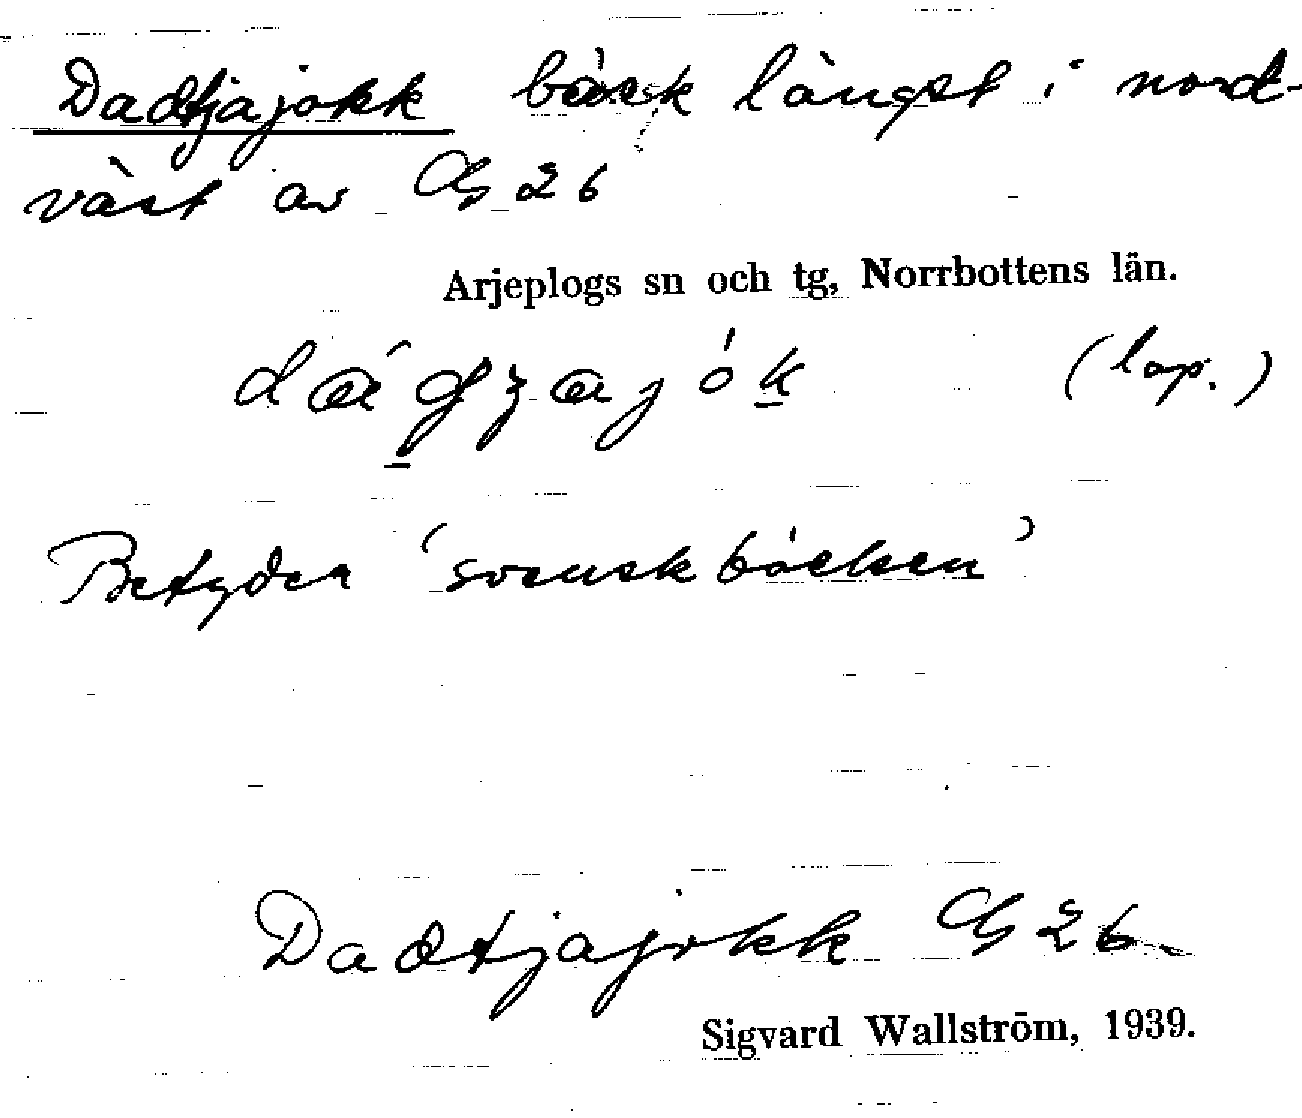 Dadtjajokk bäck längst i nord-
väst av G 26
Arjeplogs sn och tg, Norrbottens län.
(lap.)
Betyder 'svenskbäcken'
Dadtjajokk G 26
Sigvard Wallström, 1939.